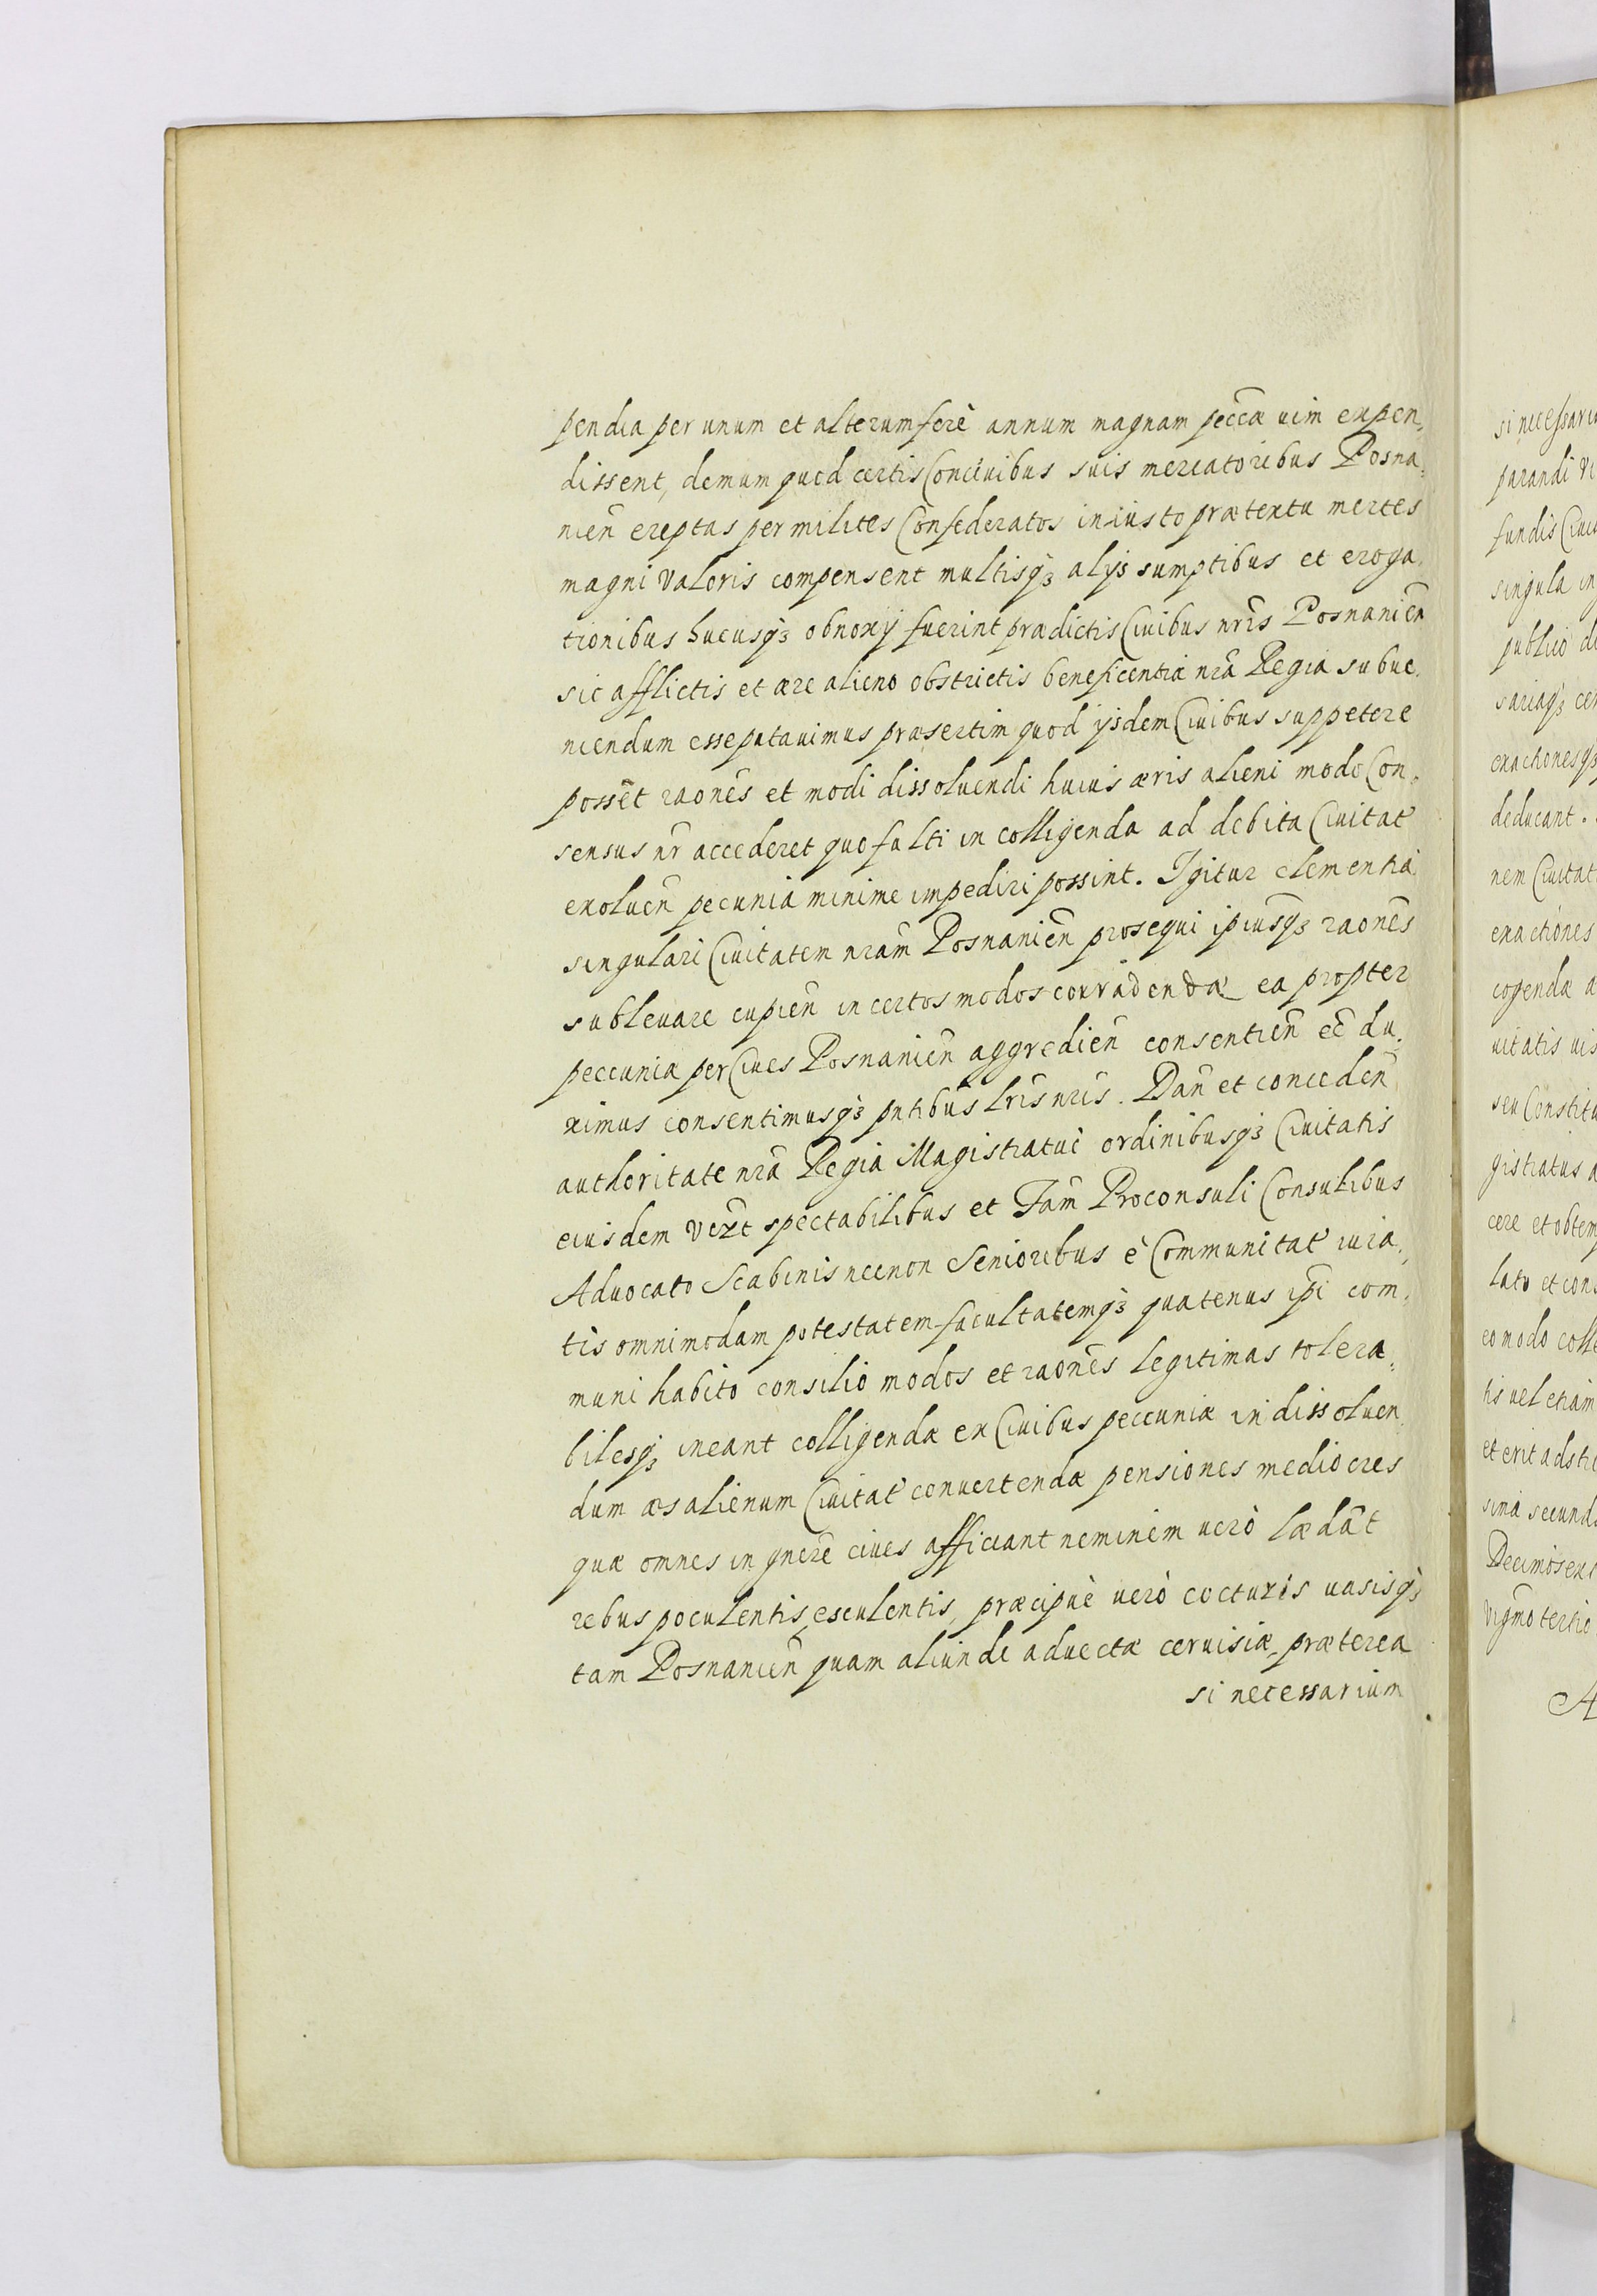 pendia per unum et alterum ferè annum magnam peccæ uim expen,
dissent, demum quod certis Conciuibus suis mercatoribus Posna,
nien̄ ereptas per milites Confederatos iniusto prætextu merces
magni valoris compensent multisqꝫ alys sumptibus et eroga,
tionibus hucusqꝫ obnoxy fuerint prædictis Ciuibus nr̄is Posnanien̄
sic afflictis et ære alieno obstrictis beneficentiâ nr̄a Regia subue,
niendum esse putauimus præsertim quod ysdem Ciuibus suppetere
possēt raōnes et modi dissoluendi huius æris alieni modo Con,
sensus nr̄ accederet quo fulti in colligenda ad debita Ciuitat̄
exoluen̄ pecunia minime impediri possint. Igitur clementia
singulari Ciuitatem nr̄am Posnanien̄ prosequi ip̄iusqꝫ raōnes
subleuare cupien̄ in certos modos corradendæ ea propter
peccunia per Ciues Posnanien̄ aggredien̄ consentien̄ eē du,
ximus consentimusqꝫ pn̄tibus lr̄is nr̄is. Dan̄ et conceden̄
authoritate nr̄a Regia Magistratui ordinibusqꝫ Ciuitatis
eiusdem vczt spectabilibus et Fam̄ Proconsuli Consulibus
Aduocato Scabinis necnon Senioribus è Communitat̄ iura,
tis omnimodam potestatem facultatemqꝫ quatenus ip̄i com,
muni habito consilio modos et raōnes legitimas tolera,
bilesqꝫ ineant colligendæ ex Ciuibus peccuniæ in dissoluen,
dum æs alienum Ciuitat̄ conuertendæ pensiones mediocres
quæ omnes in gn̄ere ciues afficiant neminem uerò lædāt
rebus poculentis, esculentis, præcipuè uerò cocturis uasisqꝫ
tam Posnanien̄ quam aliunde aduectæ ceruisiæ, præterea
si necessarium
si necessariu
parandi
fundis Ciui
singula in
publico de
sariaqꝫ cer
exactionesqꝫ
deducant.
nem Ciuitat
exactiones
cogendæ a
uitatis uis
seu Constitu
gistratus a
cere et obtem
lato et cons
eo modo colle
tis uel etiam
et erit adstri
sina secund
Decimosext
vigm̄o tertio
A